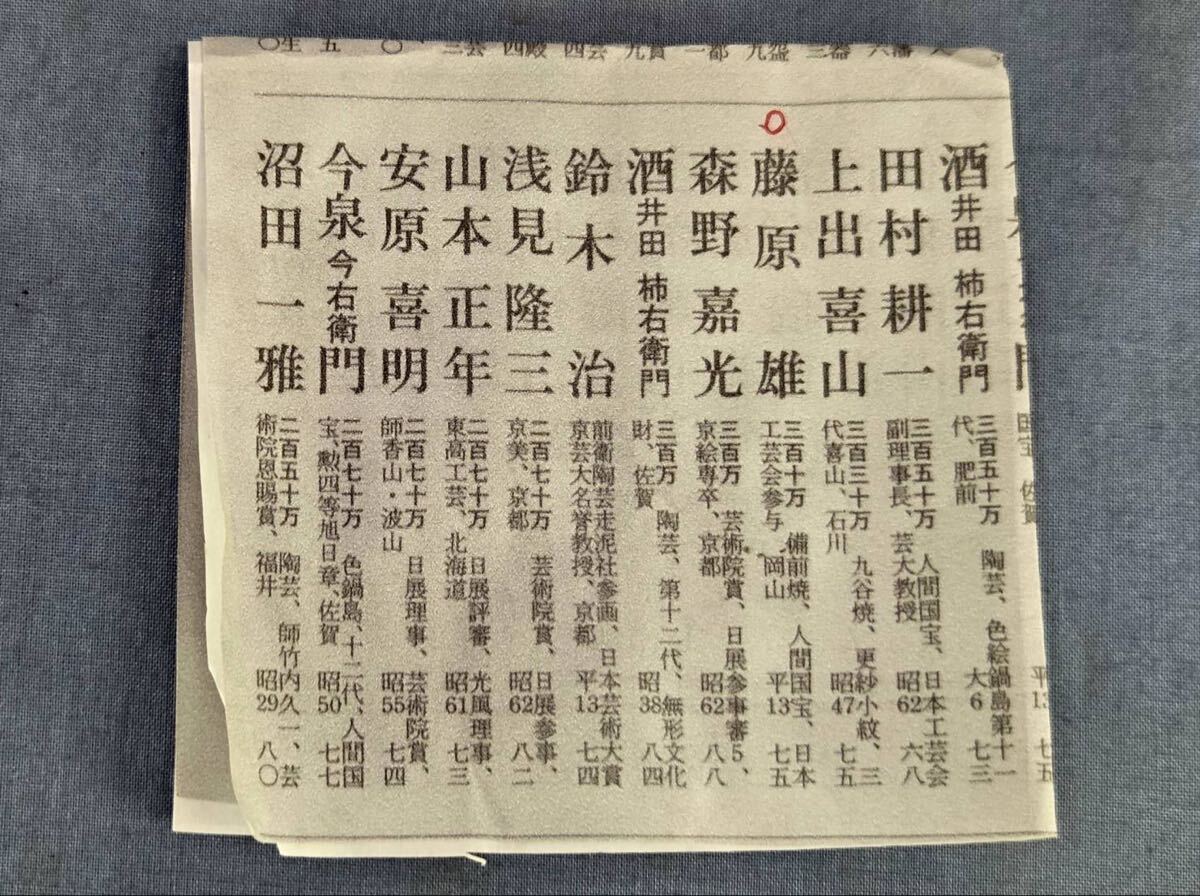 酒井田 柿右衛門
三百五十万 陶芸、色絵鍋島第十一
代、肥前 大6 七三
田村耕一
三百五十万 人間国宝、日本工芸会
副理事長、芸大教授 昭62 六八
上出喜山
三百三十万 九谷焼、更紗小紋、三
代喜山、石川 昭47 七五
藤原 雄
三百十万 備前焼、人間国宝、日本
工芸会参与、岡山 平13 七五
森野嘉光
三百万 芸術院賞、日展参事審5、
京絵専卒、京都 昭62 八八
酒井田 柿右衛門
三百万 陶芸、第十二代、無形文化
財、佐賀 昭38 八四
鈴木 治
前衛陶芸走泥社参画、日本芸術大賞
京芸大名誉教授、京都 平13 七四
浅見隆三
二百七十万 芸術院賞、日展参事、
京美、京都 昭62 八二
山本正年
二百七十万 日展評審、光風理事、
東高工芸、北海道 昭61 七三
安原喜明
二百七十万 日展理事、芸術院賞、
師香山・波山 昭55 七四
今泉今右衛門
二百七十万 色鍋島、十二代、人間国
宝、勲四等旭日章、佐賀 昭50 七七
沼田一雅
二百五十万 陶芸、師竹内久一、芸
術院恩賜賞、福井 昭29 八〇